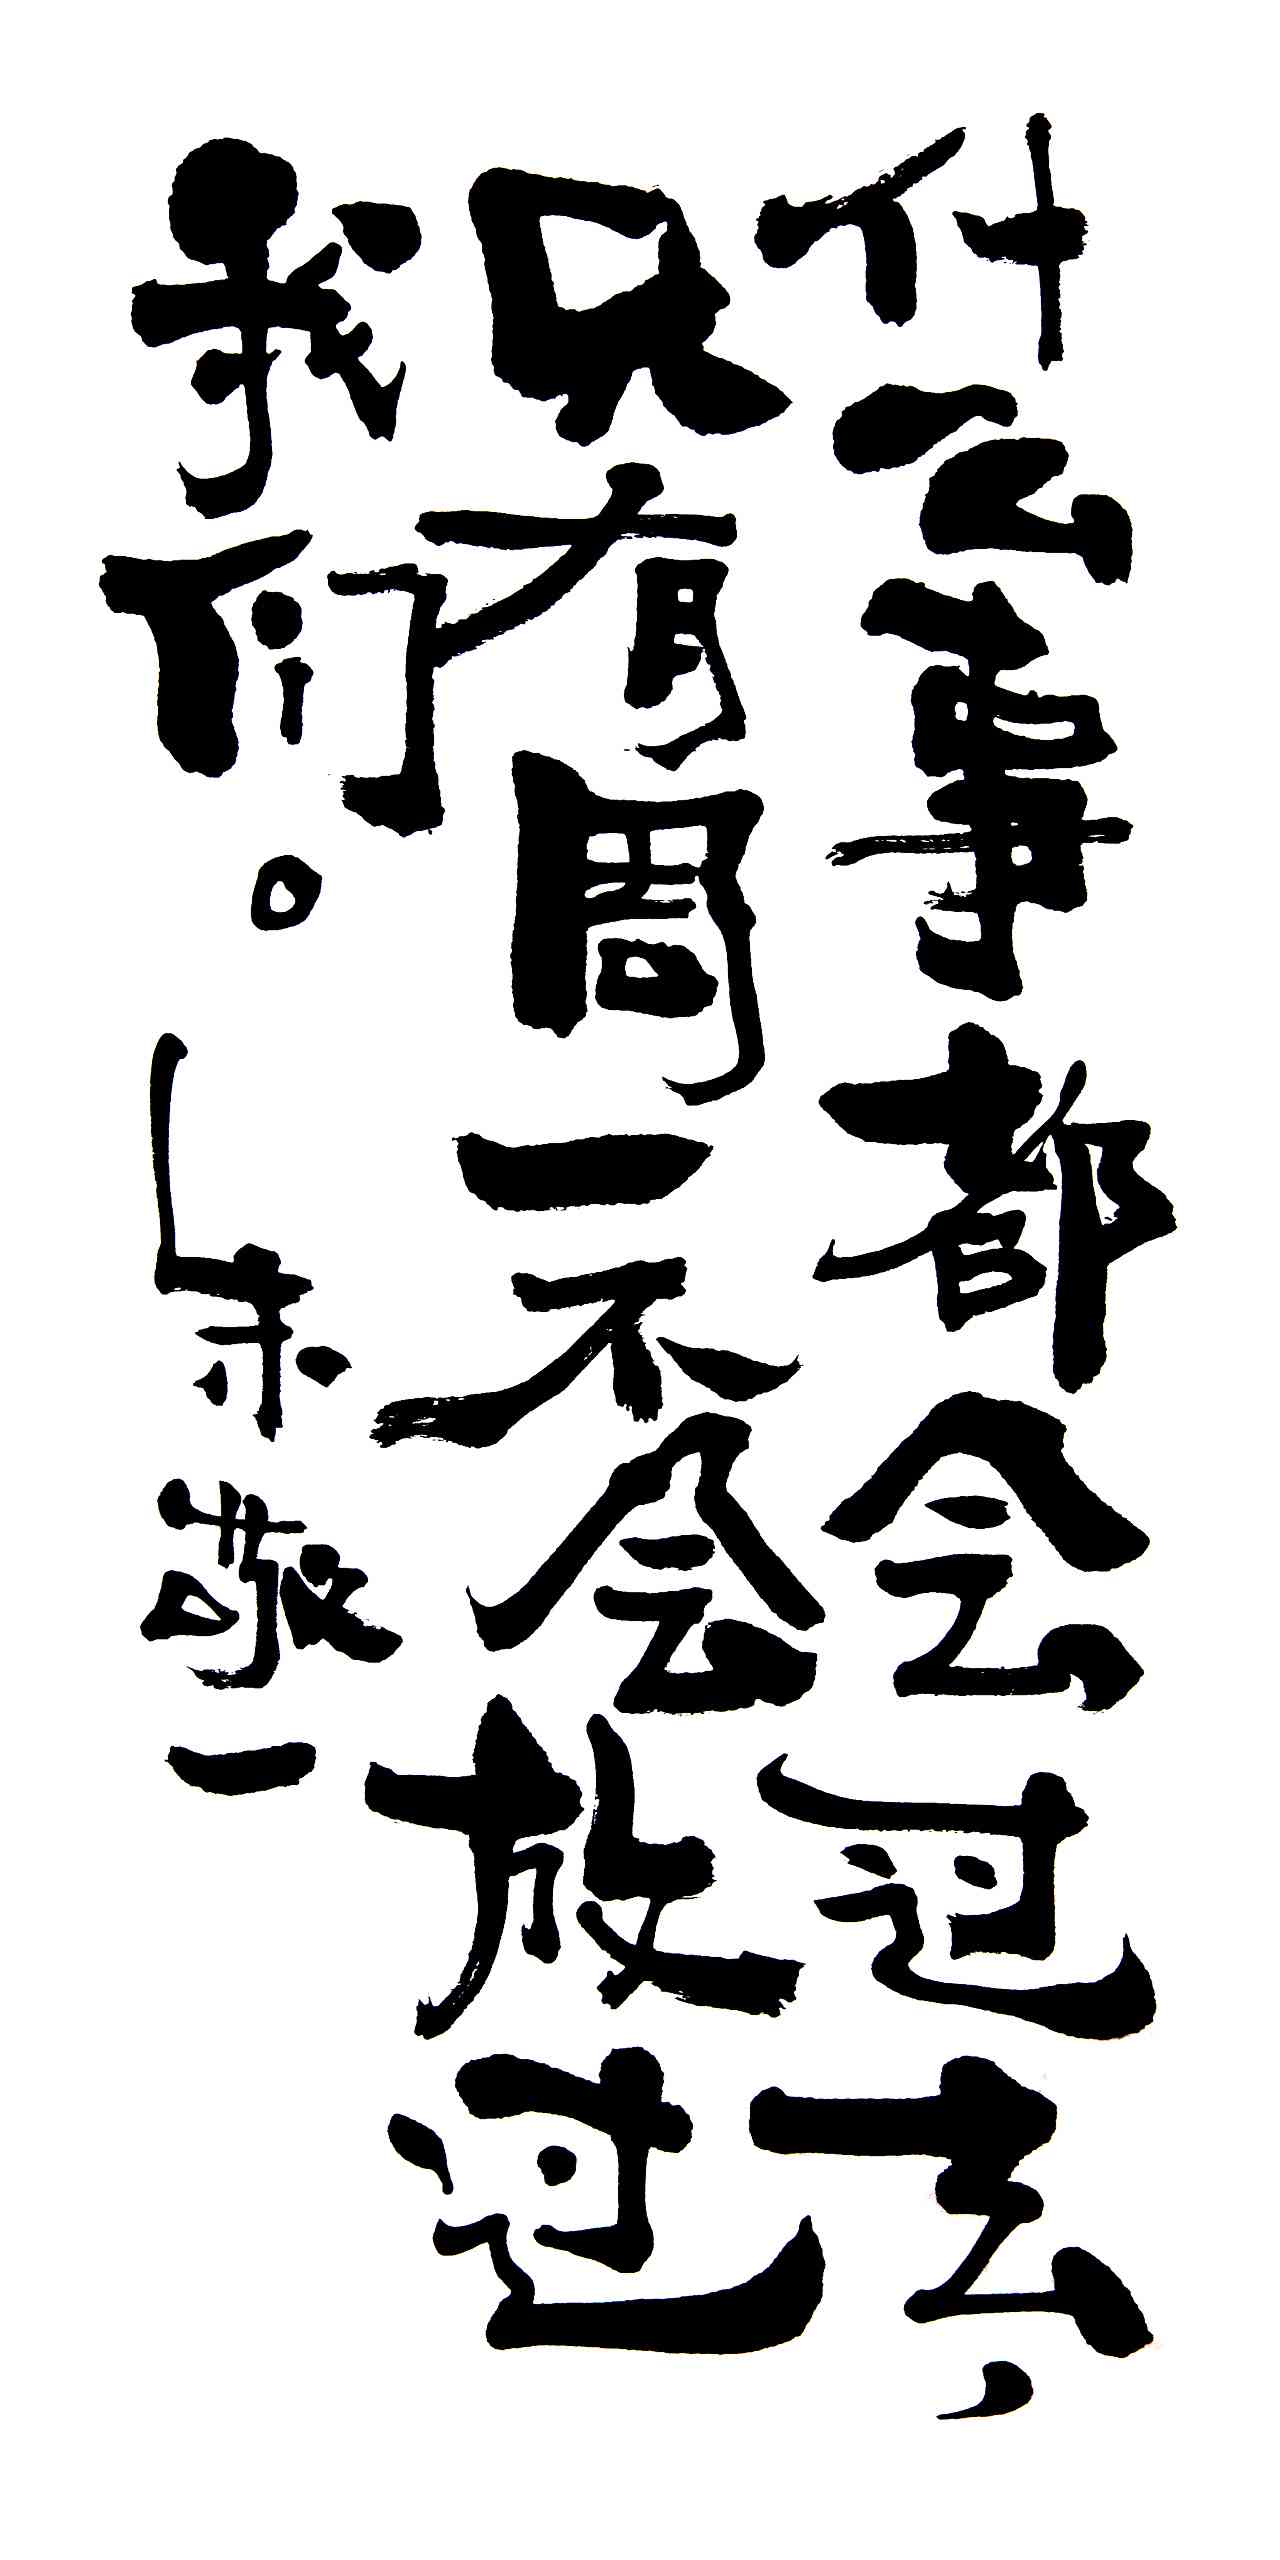 什么事都会过去，
只有周一不会放过
我们。朱敬一